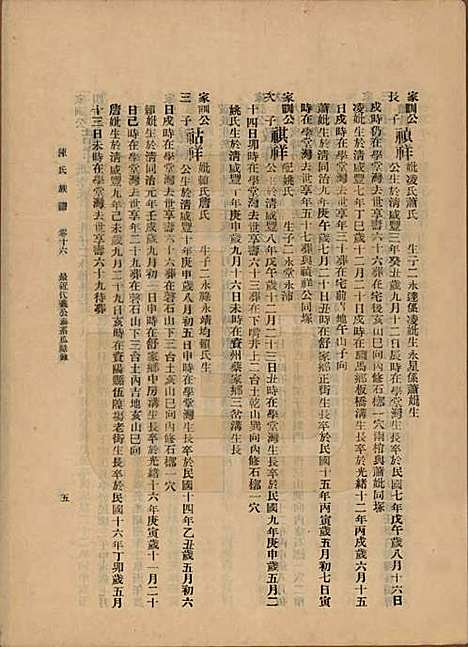 家訓公 妣凌氏蕭氏 生子二永達係凌妣生永星係蕭妣生
長子禎祥 公生於清咸豐三年癸丑歲九月十二日辰時在學堂灣生長卒於民國七年戊午歲八月十六日
戌時仍在學堂灣去世享壽六十六葬在宅後亥山巳向內修石槨一穴南棺與蕭妣同塚
凌妣生於清咸豐七年丁巳歲十二月二十日戌時在駟馬鄉板橋溝生長卒於光緒十二年丙戌歲六月十五
日戌時在學堂灣去世享壽三十葬在宅前地午山子向
蕭妣生於清同治九年庚午歲二月二十日丑時在舒家鄉正街生長卒於民國十五年丙寅歲五月初七日寅
時在學堂灣去世享壽五十七葬與禎祥公同塚
家訓公 配姚氏 生子二永堂永沛
次子祺祥 公生於清咸豐八年戊午歲十二月二十三日丑時在學堂灣生長卒於民國九年庚申歲五月二
十四日卯時在學堂灣去世享壽六十三葬在下嘴井上二台土乾山巽向內修石槨一穴
姚氏生於清咸豐十年庚申歲九月十六日未時在資州蔡家鄉三岔溝生長
家訓公 妣賴氏詹氏 生子二永隆永靖均賴氏生
三子祜祥 公生於清咸豐十年庚申歲八月十五日卯時在學堂灣生長卒於民國十四年乙丑歲五月初六
日戌時在學堂灣去世享壽六十六葬在磐石山下三台土亥山巳向內修石槨一穴
賴妣生於清同治元年壬戌歲九月初三日申時在舒家鄉中房溝生長卒於光緒十六年庚寅歲十一月二十
日巳時在學堂灣去世享年二十九葬在磐石山下三台土內吉地亥山巳向
詹妣生於清咸豐九年己未歲九月二十九日亥時在資陽縣伍隍場老街生長卒於民國十六年丁卯歲五月
十三日未時在學堂灣去世享壽六十九待葬
陳氏族譜 卷十六 五